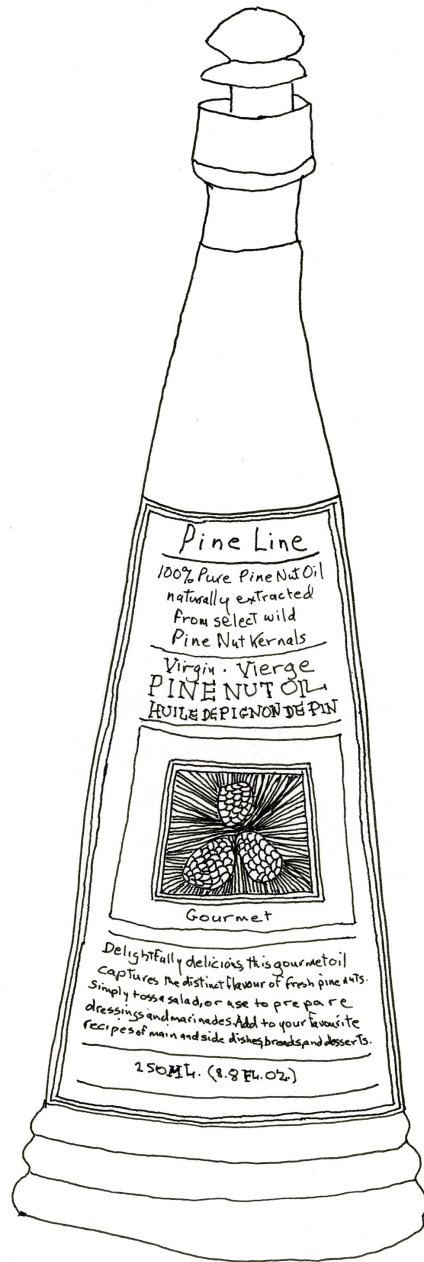 Pine Line
100% Pure Pine Nut Oil
naturally extracted
from select wild
Pine Nut Kernals
Virgin · Vierge
PINE NUT OIL
HUILE DE PIGNON DE PIN
Gourmet
Delightfully delicious, this gourmet oil
captures the distinct flavour of fresh pine nuts.
Simply toss a salad, or use to prepare
dressings and marinades. Add to your favourite
recipes of main and side dishes, breads, and desserts.
250ML. (8.8 FL. OZ.)